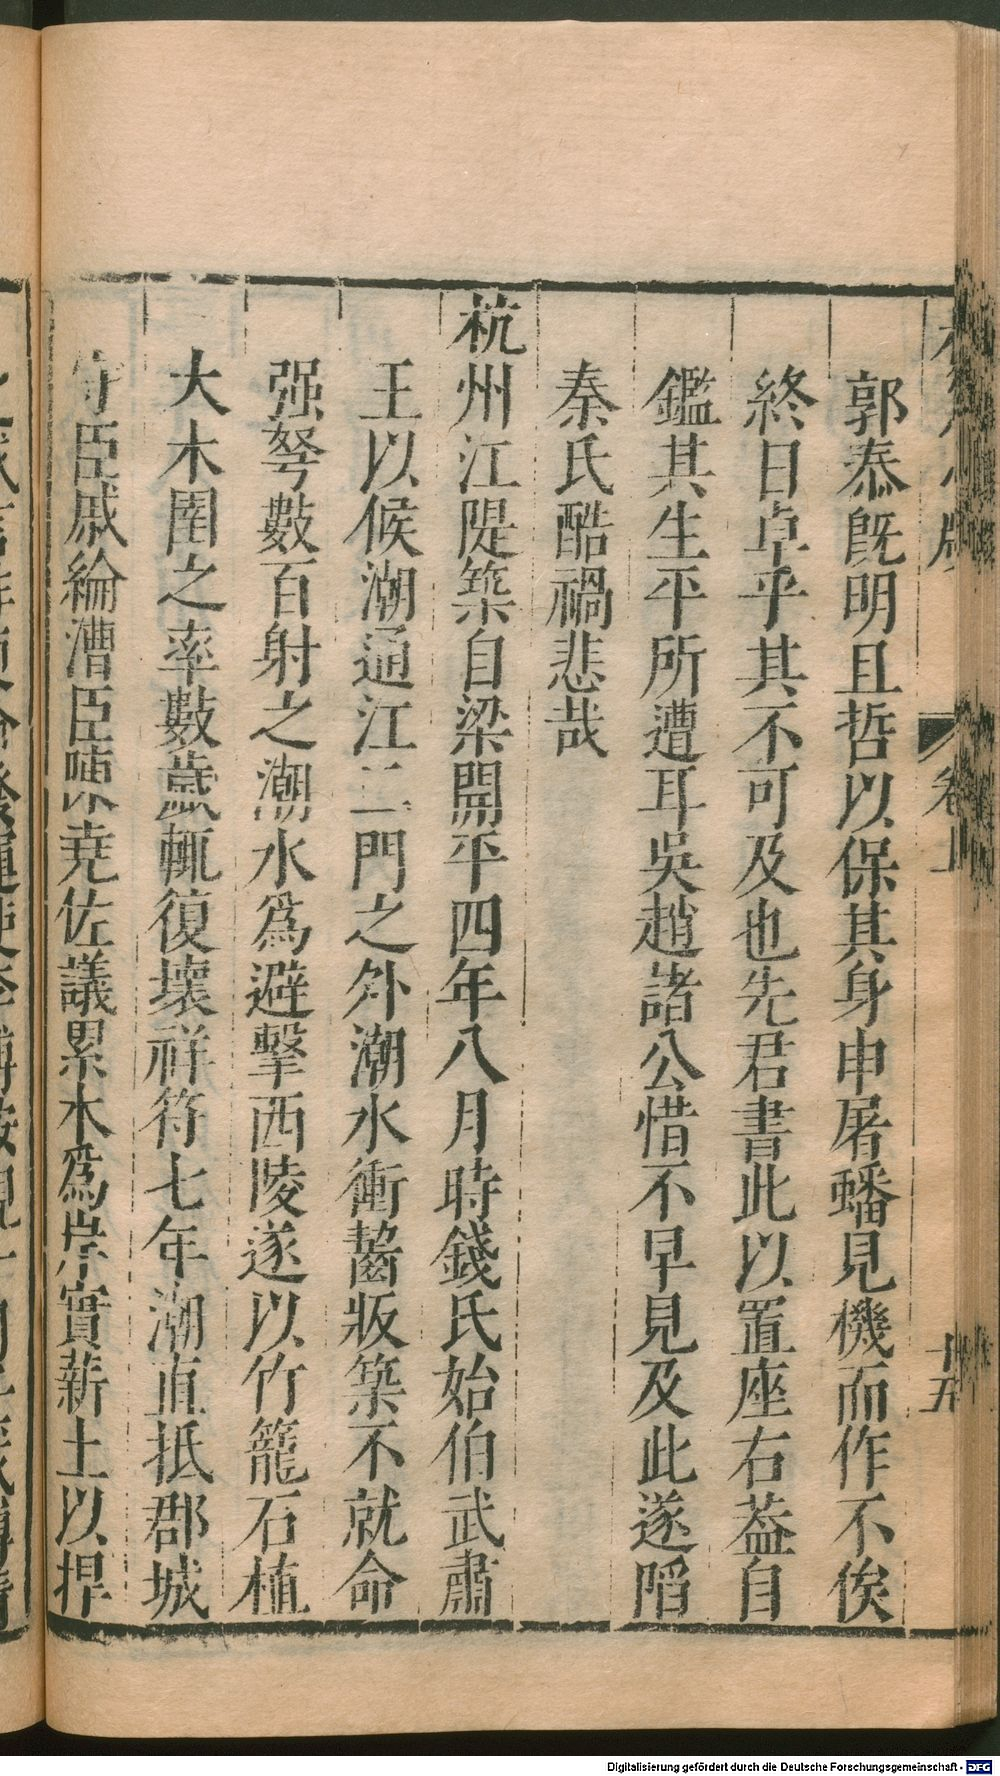 郭泰旣明且哲以保其身申屠蟠見機而作不俟
終日卓乎其不可及也先君書此以置座右葢自
鑑其生平所遭耳吳趙諸公惜不早見及此遂䧟
秦氏酷禍悲哉
杭州江隄築自梁開平四年八月時錢氏始伯武肅
王以候潮通江二門之外潮水衝齧版築不就命
强弩數百射之潮水爲避擊西陵遂以竹籠石植
大木圍之率數歲輒復壞祥符七年潮直抵郡城
守臣戚綸漕臣陳堯佐議累木爲岸實薪土以捍
卷上
十五
Digitalisierung gefördert durch die Deutsche Forschungsgemeinschaft - DFG